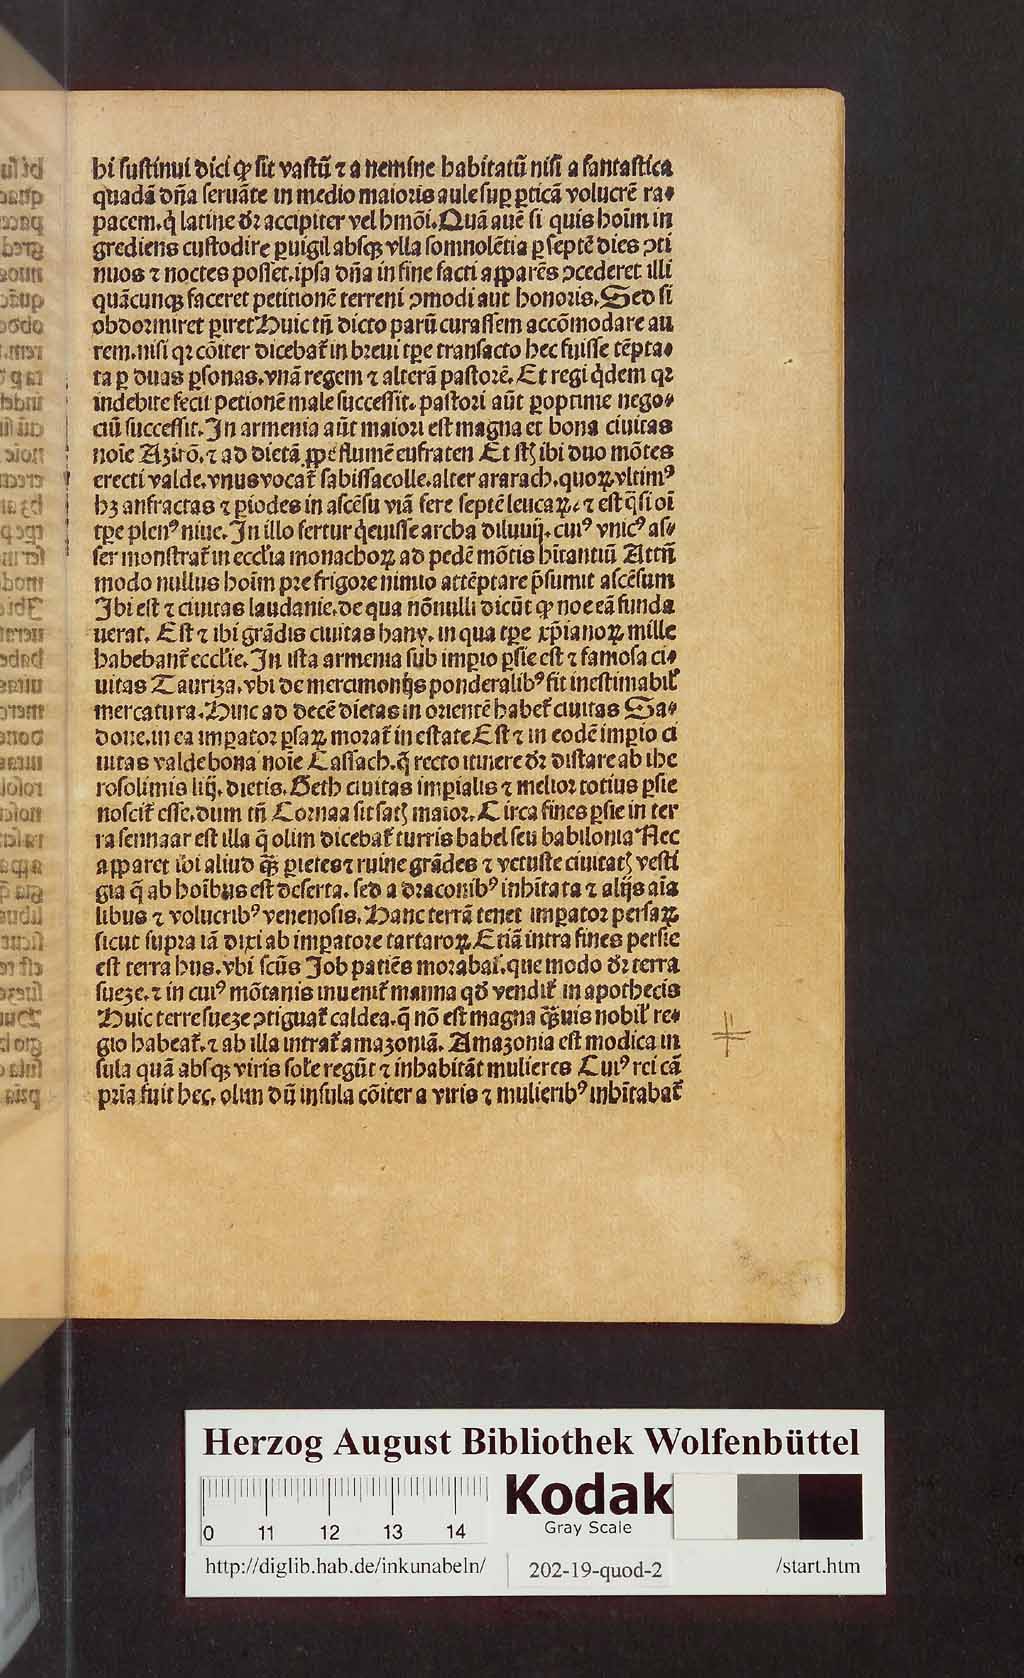 bi sustinui dici ꝙ sit vastū ⁊ a nemine habitatū nisi a fantastica
quadā dn̄a seruāte in medio maioris aule suꝑ ꝑticā volucrē ra⸗
pacem. q̇ latine dr̄ accipiter vel hmōi. Quā auē si quis hoīm in
grediens custodire ꝑuigil absqꝫ vlla somnolētia ꝑ septē dies ↄti
nuos ⁊ noctes posset. ipsa dn̄a in fine facti apparēs ↄcederet illi
quācunqꝫ faceret petitionē terreni ↄmodi aut honoris. Sed si
obdormiret ꝑiret Huic tn̄ dicto parū curassem accōmodare au
rem. nisi qꝛ cōiter dicebat᷑ in breui tꝑe transacto hec fuisse tēpta⸗
ta ꝑ duas ꝑsonas. vnā regem ⁊ alterā pastorē. Et regi q̇dem qꝛ
indebite fecit petionē male successit. pastori aūt ꝑoptime nego⸗
ciū successit. In armenia aūt maiori est magna et bona ciuitas
noīe Azirō. ⁊ ad dietā ꝓpe flumē eufraten Et st̄ ibi duo mōtes
erecti valde. vnus vocat᷑ sabissacolle. alter ararach. quoꝝ vltimꝰ
hꝫ anfractas ⁊ ꝑiodes in ascēsu viā fere septē leucaꝝ. ⁊ est q̄si oī
tꝑe plenꝰ niue. In illo fertur q̇euisse archa diluuij. cuiꝰ vnicꝰ as⸗
ser monstrat᷑ in eccl̄ia monachoꝝ ad pedē mōtis hītantiū Attn̄
modo nullus hoīm pre frigore nimio attēptare p̄sumit ascēsum
Ibi est ⁊ ciuitas laudanie. de qua nōnulli dicūt ꝙ noe eā funda
uerat. Est ⁊ ibi grādis ciuitas hany. in qua tꝑe xp̄ianoꝝ mille
habebant᷑ eccl̄ie. In ista armenia sub imꝑio ꝑsie est ⁊ famosa ci⸗
uitas Tauriza. vbi de mercimonijs ponderalibꝰ fit inestimabil᷑
mercatura. Hinc ad decē dietas in orientē habet᷑ ciuitas Sa⸗
doue. in ea imꝑator ꝑsaꝝ morat᷑ in estate Est ⁊ in eodē imꝑio ci
uitas valde bona noīe Cassach. q̄ recto itinere dr̄ distare ab ihe
rosolimis liij. dietis. Geth ciuitas imꝑialis ⁊ melior totius ꝑsie
noscit᷑ esse. dum tn̄ Cornaa sit satꝫ maior. Circa fines ꝑsie in ter
ra sennaar est illa q̄ olim dicebat᷑ turris babel seu babilonia Nec
apparet ibi aliud qꝫ̄ ꝑietes ⁊ ruine grādes ⁊ vetuste ciuitatꝫ vesti
gia q̄ ab hoībus est deserta. sed a draconibꝰ inhītata ⁊ alijs aīa
libus ⁊ volucribꝰ venenosis. Hanc terrā tenet imꝑator persaꝝ
sicut supra iā dixi ab imꝑatore tartaroꝝ. Etiā intra fines persie
est terra hus. vbi scūs Job patiēs morabat᷑. que modo dr̄ terra
sueze. ⁊ in cuiꝰ mōtanis inuenit᷑ manna qd̄ vendit᷑ in apothecis
Huic terre sueze ↄtiguat᷑ caldea. q̄ nō est magna qꝫ̄uis nobil᷑ re⸗
gio habeat᷑. ⁊ ab illa intrat᷑ amazoniā. Amazonia est modica in
sula quā absqꝫ viris sole regūt ⁊ inhabitāt mulieres Cuiꝰ rei cā
pria̅ fuit hec. olim dū insula cōiter a viris ⁊ mulieribꝰ inhītabat᷑
Herzog August Bibliothek Wolfenbüttel
0 11 12 13 14
Kodak
Gray Scale
http://diglib.hab.de/inkunabeln/ 202-19-quod-2 /start.htm